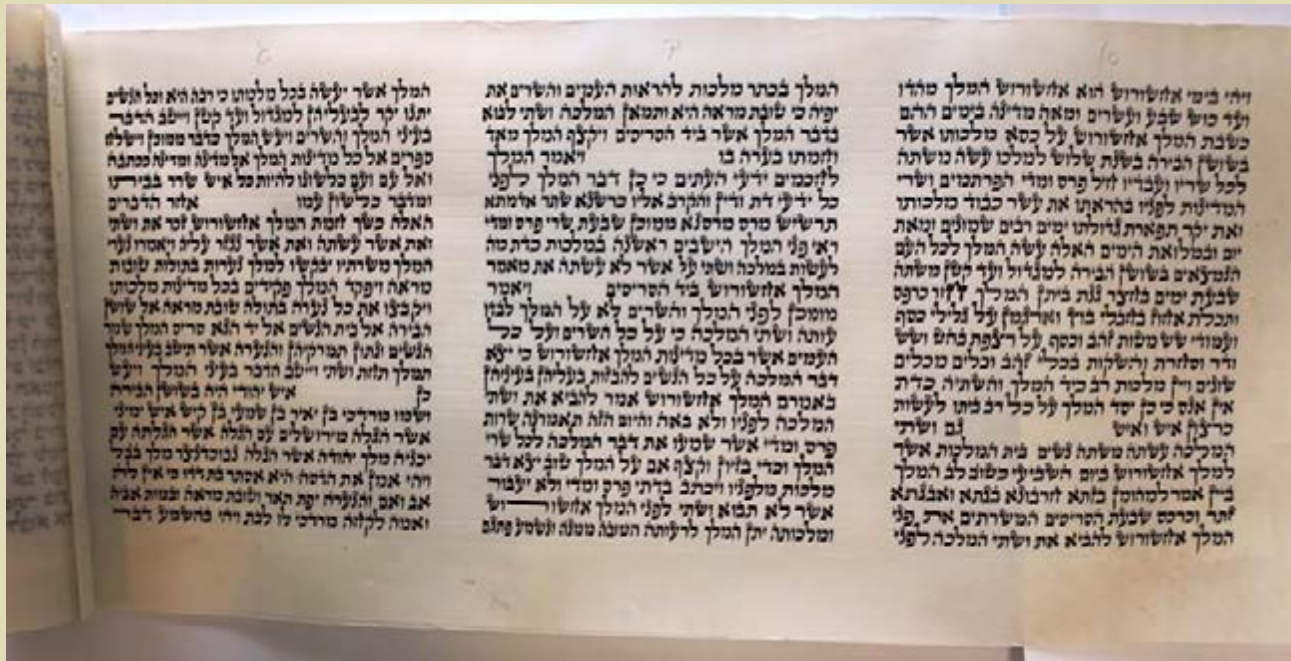 ויהי בימי אחשורוש הוא אחשורוש המלך מהדו
ועד כוש שבע ועשרים ומאה מדינה בימים ההם
כשבת המלך אחשורוש על כסא מלכותו אשר
בשושן הבירה בשנת שלוש למלכו עשה משתה
לכל שריו ועבדיו חיל פרס ומדי הפרתמים ושרי
המדינות לפניו בהראתו את עשר כבוד מלכותו
ואת יקר תפארת גדולתו ימים רבים שמונים ומאת
יום ובמלואת הימים האלה עשה המלך לכל העם
הנמצאים בשושן הבירה למגדול ועד קטן משתה
שבעת ימים בחצר גנת ביתן המלך חור כרפס
ותכלת אחוז בחבלי בוץ וארגמן על גלילי כסף
ועמודי שש מטות זהב וכסף על רצפת בהט ושש
ודר וסחרת והשקות בכלי זהב וכלים מכלים
שונים ויין מלכות רב כיד המלך והשתיה כדת
אין אנס כי כן יסד המלך על כל רב ביתו לעשות
כרצון איש ואיש גם ושתי
המלכה עשתה משתה נשים בית המלכות אשר
למלך אחשורוש ביום השביעי כטוב לב המלך
ביין אמר למהומן בזתא חרבונא בגתא ואבגתא
זתר וכרכס שבעת הסריסים המשרתים את פני
המלך אחשורוש להביא את ושתי המלכה לפני
המלך בכתר מלכות להראות העמים והשרים את
יפיה כי טובת מראה היא ותמאן המלכה ושתי לבוא
בדבר המלך אשר ביד הסריסים ויקצף המלך מאד
וחמתו בערה בו ויאמר המלך
לחכמים ידעי העתים כי כן דבר המלך לפני
כל ידעי דת ודין והקרב אליו כרשנא שתר אדמתא
תרשיש מרס מרסנא ממוכן שבעת שרי פרס ומדי
ראי פני המלך הישבים ראשנה במלכות כדת מה
לעשות במלכה ושתי על אשר לא עשתה את מאמר
המלך אחשורוש ביד הסריסים ויאמר
מומכן לפני המלך והשרים לא על המלך לבדו
עותה ושתי המלכה כי על כל השרים ועל כל
העמים אשר בכל מדינות המלך אחשורוש כי יצא
דבר המלכה על כל הנשים להבזות בעליהן בעיניהן
באמרם המלך אחשורוש אמר להביא את ושתי
המלכה לפניו ולא באה והיום הזה תאמרנה שרות
פרס ומדי אשר שמעו את דבר המלכה לכל שרי
המלך וכדי בזיון וקצף אם על המלך טוב יצא דבר
מלכות מלפניו ויכתב בדתי פרס ומדי ולא יעבור
אשר לא תבוא ושתי לפני המלך אחשורוש
ומלכותה יתן המלך לרעותה הטובה ממנה ונשמע פתגם
המלך אשר יעשה בכל מלכותו כי רבה היא וכל הנשים
יתנו יקר לבעליהן למגדול ועד קטן וייטב הדבר
בעיני המלך והשרים ויעש המלך כדבר ממוכן וישלח
ספרים אל כל מדינות המלך אל מדינה ומדינה ככתבה
ואל עם ועם כלשונו להיות כל איש שרר בביתו
ומדבר כלשון עמו אחר הדברים
האלה כשך חמת המלך אחשורוש זכר את ושתי
ואת אשר עשתה ואת אשר נגזר עליה ויאמרו נערי
המלך משרתיו יבקשו למלך נערות בתולות טובות
מראה ויפקד המלך פקידים בכל מדינות מלכותו
ויקבצו את כל נערה בתולה טובת מראה אל שושן
הבירה אל בית הנשים אל יד הגא סריס המלך שמר
הנשים ונתון תמרקיהן והנערה אשר תיטב בעיני המלך
תמלך תחת ושתי וייטב הדבר בעיני המלך ויעש
כן איש יהודי היה בשושן הבירה
ושמו מרדכי בן יאיר בן שמעי בן קיש איש ימיני
אשר הגלה מירושלים עם הגלה אשר הגלתה עם
יכניה מלך יהודה אשר הגלה נבוכדנצר מלך בבל
ויהי אמן את הדסה היא אסתר בת דדו כי אין לה
אב ואם והנערה יפת תאר וטובת מראה ובמות אביה
ואמה לקחה מרדכי לו לבת ויהי בהשמע דבר